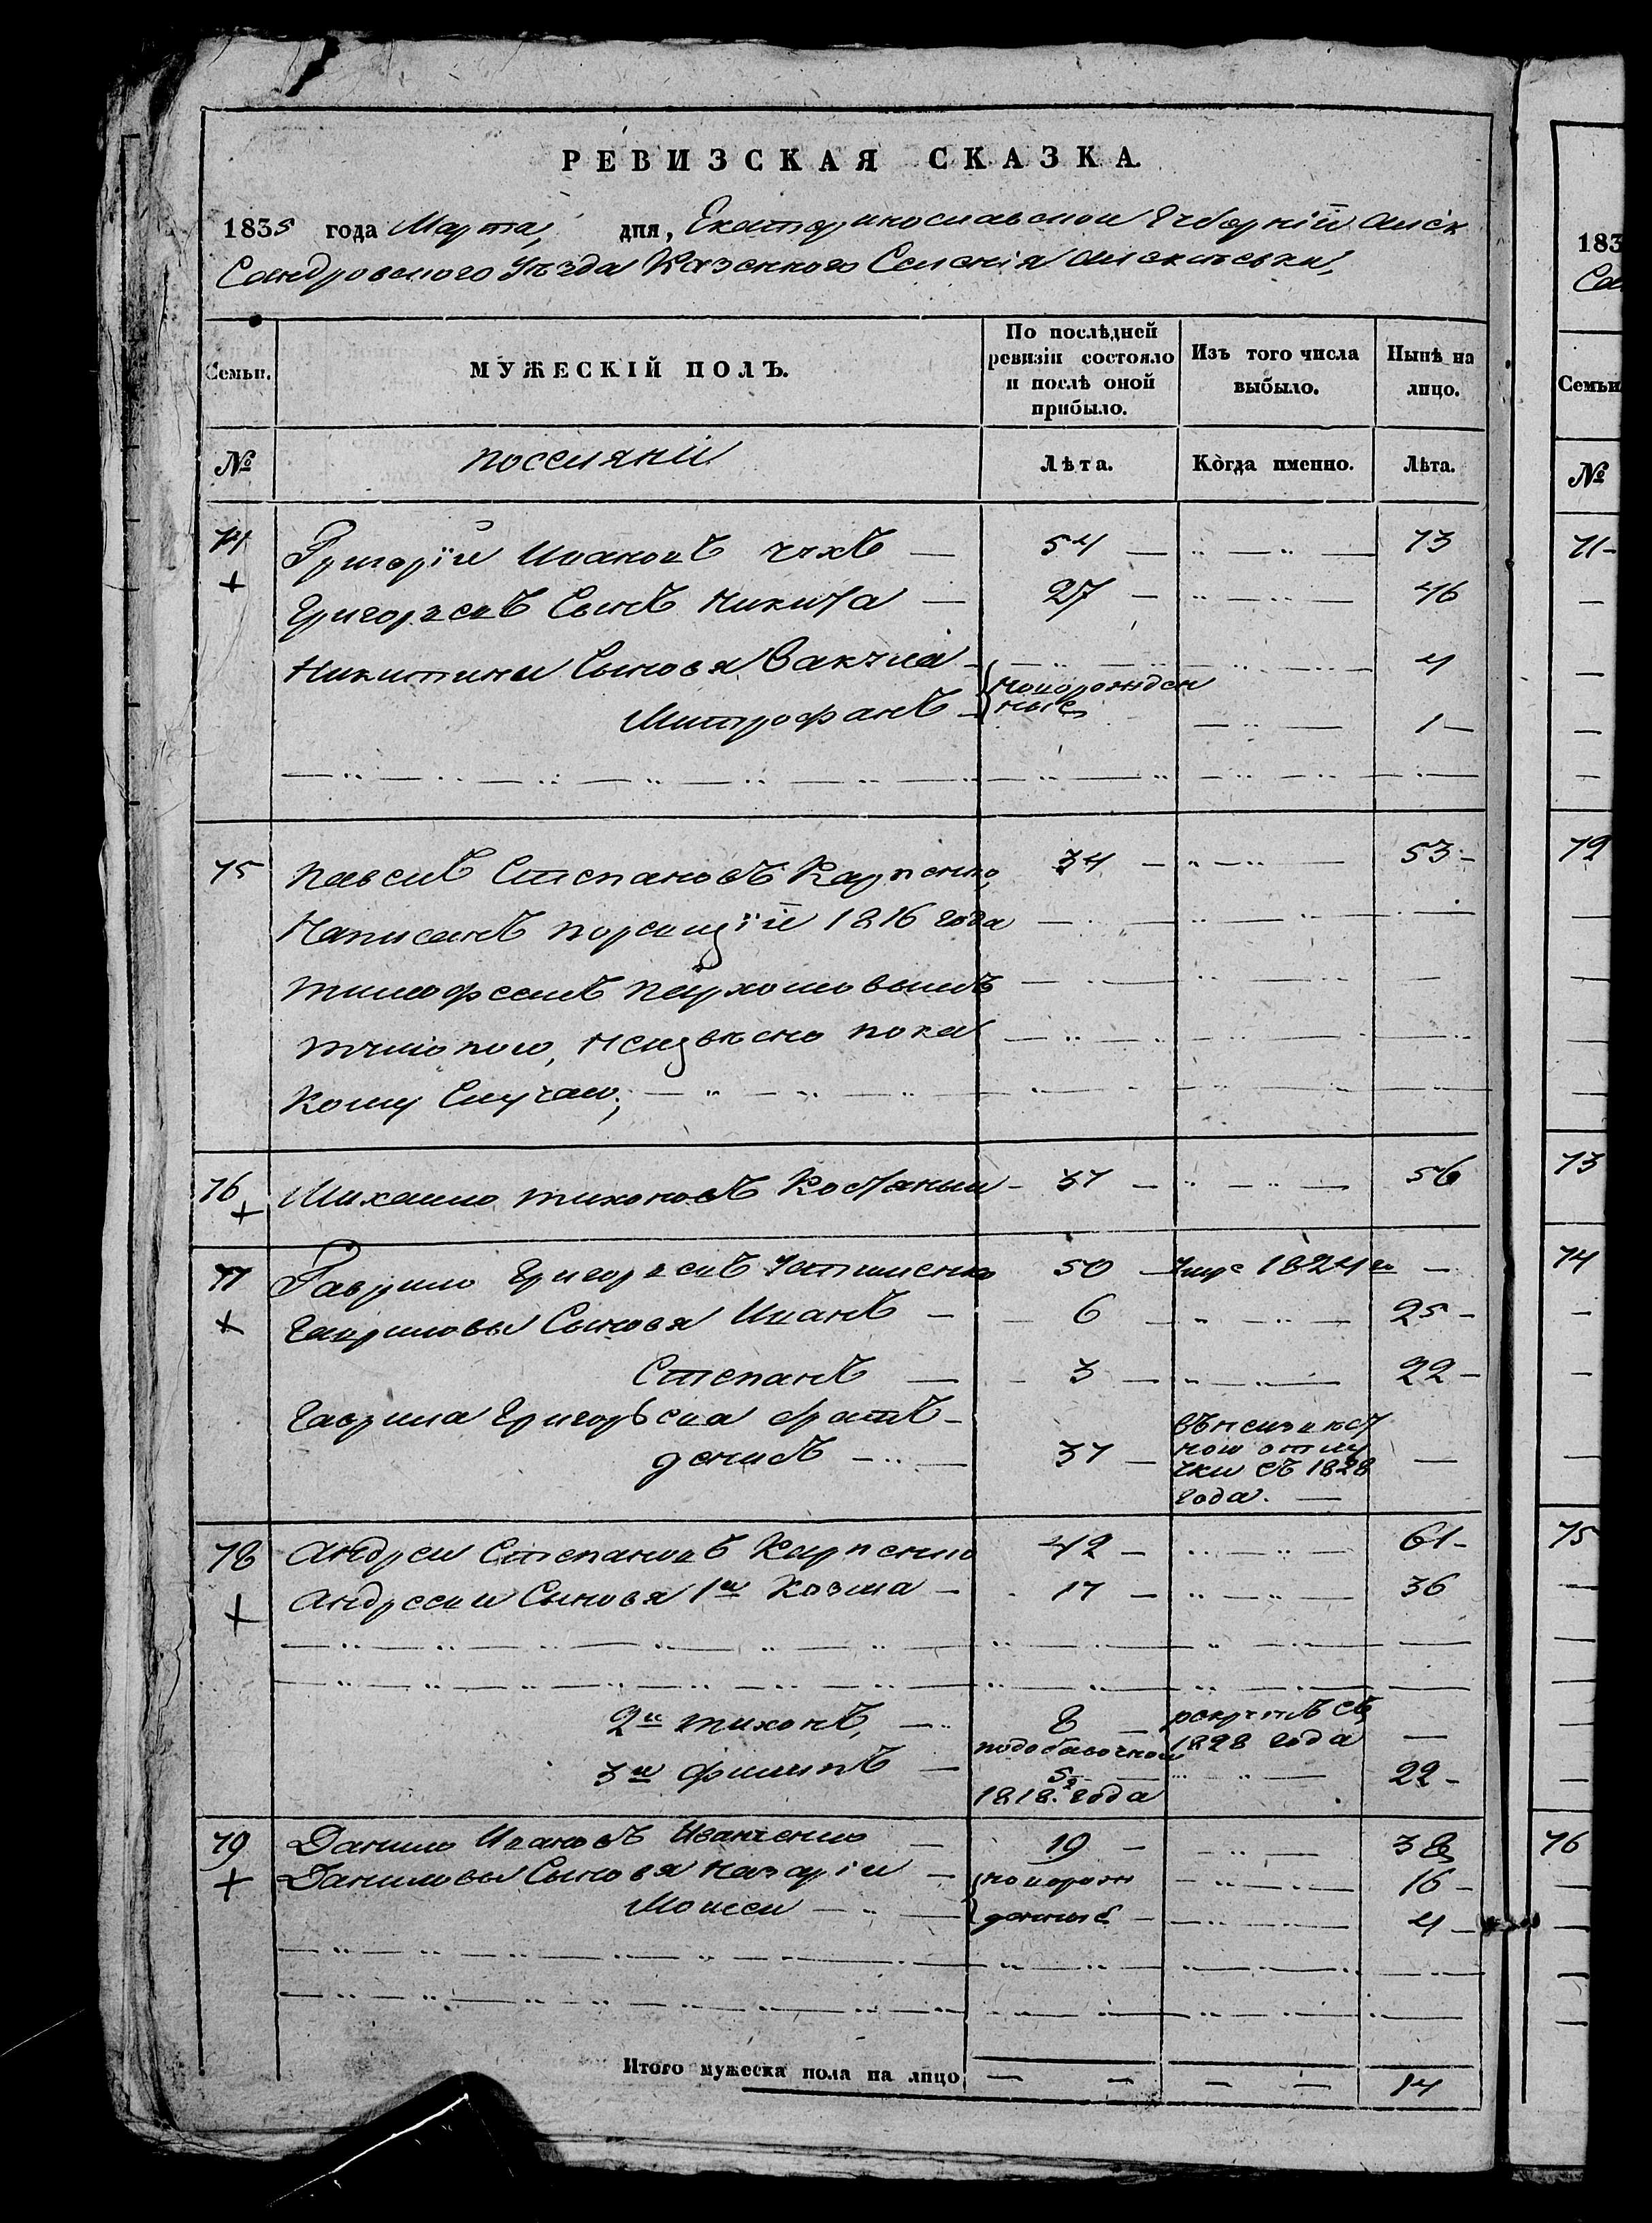 РЕВИЗСКАЯ СКАЗКА.
1835 года Марта, дня, Екатеринославской Губернїи Алек
Сандровского Уѣзда Казенного Селенія Алексѣевки,
Семьи. МУЖЕСКІЙ ПОЛЪ. По послѣдней ревизіи состояло и послѣ оной прибыло. Изъ того числа выбыло. Нынѣ на лицо.
№ поселяни Лѣта. Когда именно. Лѣта.
74 Григорїи Ивановъ — 54 — 73
+ Григорьевъ Сынъ Никита — 27 — 46
Никитини Сыновя Вакула — 4
новорожден
Митрофанъ — ные 1 —
75 Павелъ Степановъ Карпенко 34 — 53 —
Написанъ поревизїи 1816 года
тимофеемъ пархомовымъ
неизвѣсно пока
кому Случаю;
76 Михаило тихоновъ — 37 — 56
+
77 Гаврило Григорьевъ 50 — умре 1824 го —
+ Гавриловы Сыновя Иванъ — 6 — 25 —
Степанъ — 3 — 22 —
Гаврила Григорьева братъ —
денисъ — 37 — въ неизвѣст
ной отлу
чки съ 1828
года. —
78 Андреи Степановъ Карпенко 42 — 61 —
+ Андрееви Сыновя 1й Козма — 17 — 36
2й тихонъ, — 8 — рекрутъ съ
1828 года —
подобавочной
3й филипъ — 5 — 22 —
1818. года
79 Данило Ивановъ Иванченко — 19 — 38
+ Даниловы Сыновя Назарїи — новорож — 16 —
Моисеи — денные — 4 —
Итого мужеска пола на лицо — — — — 14
183
Семьи
№
71 —
72
73
74
75
76